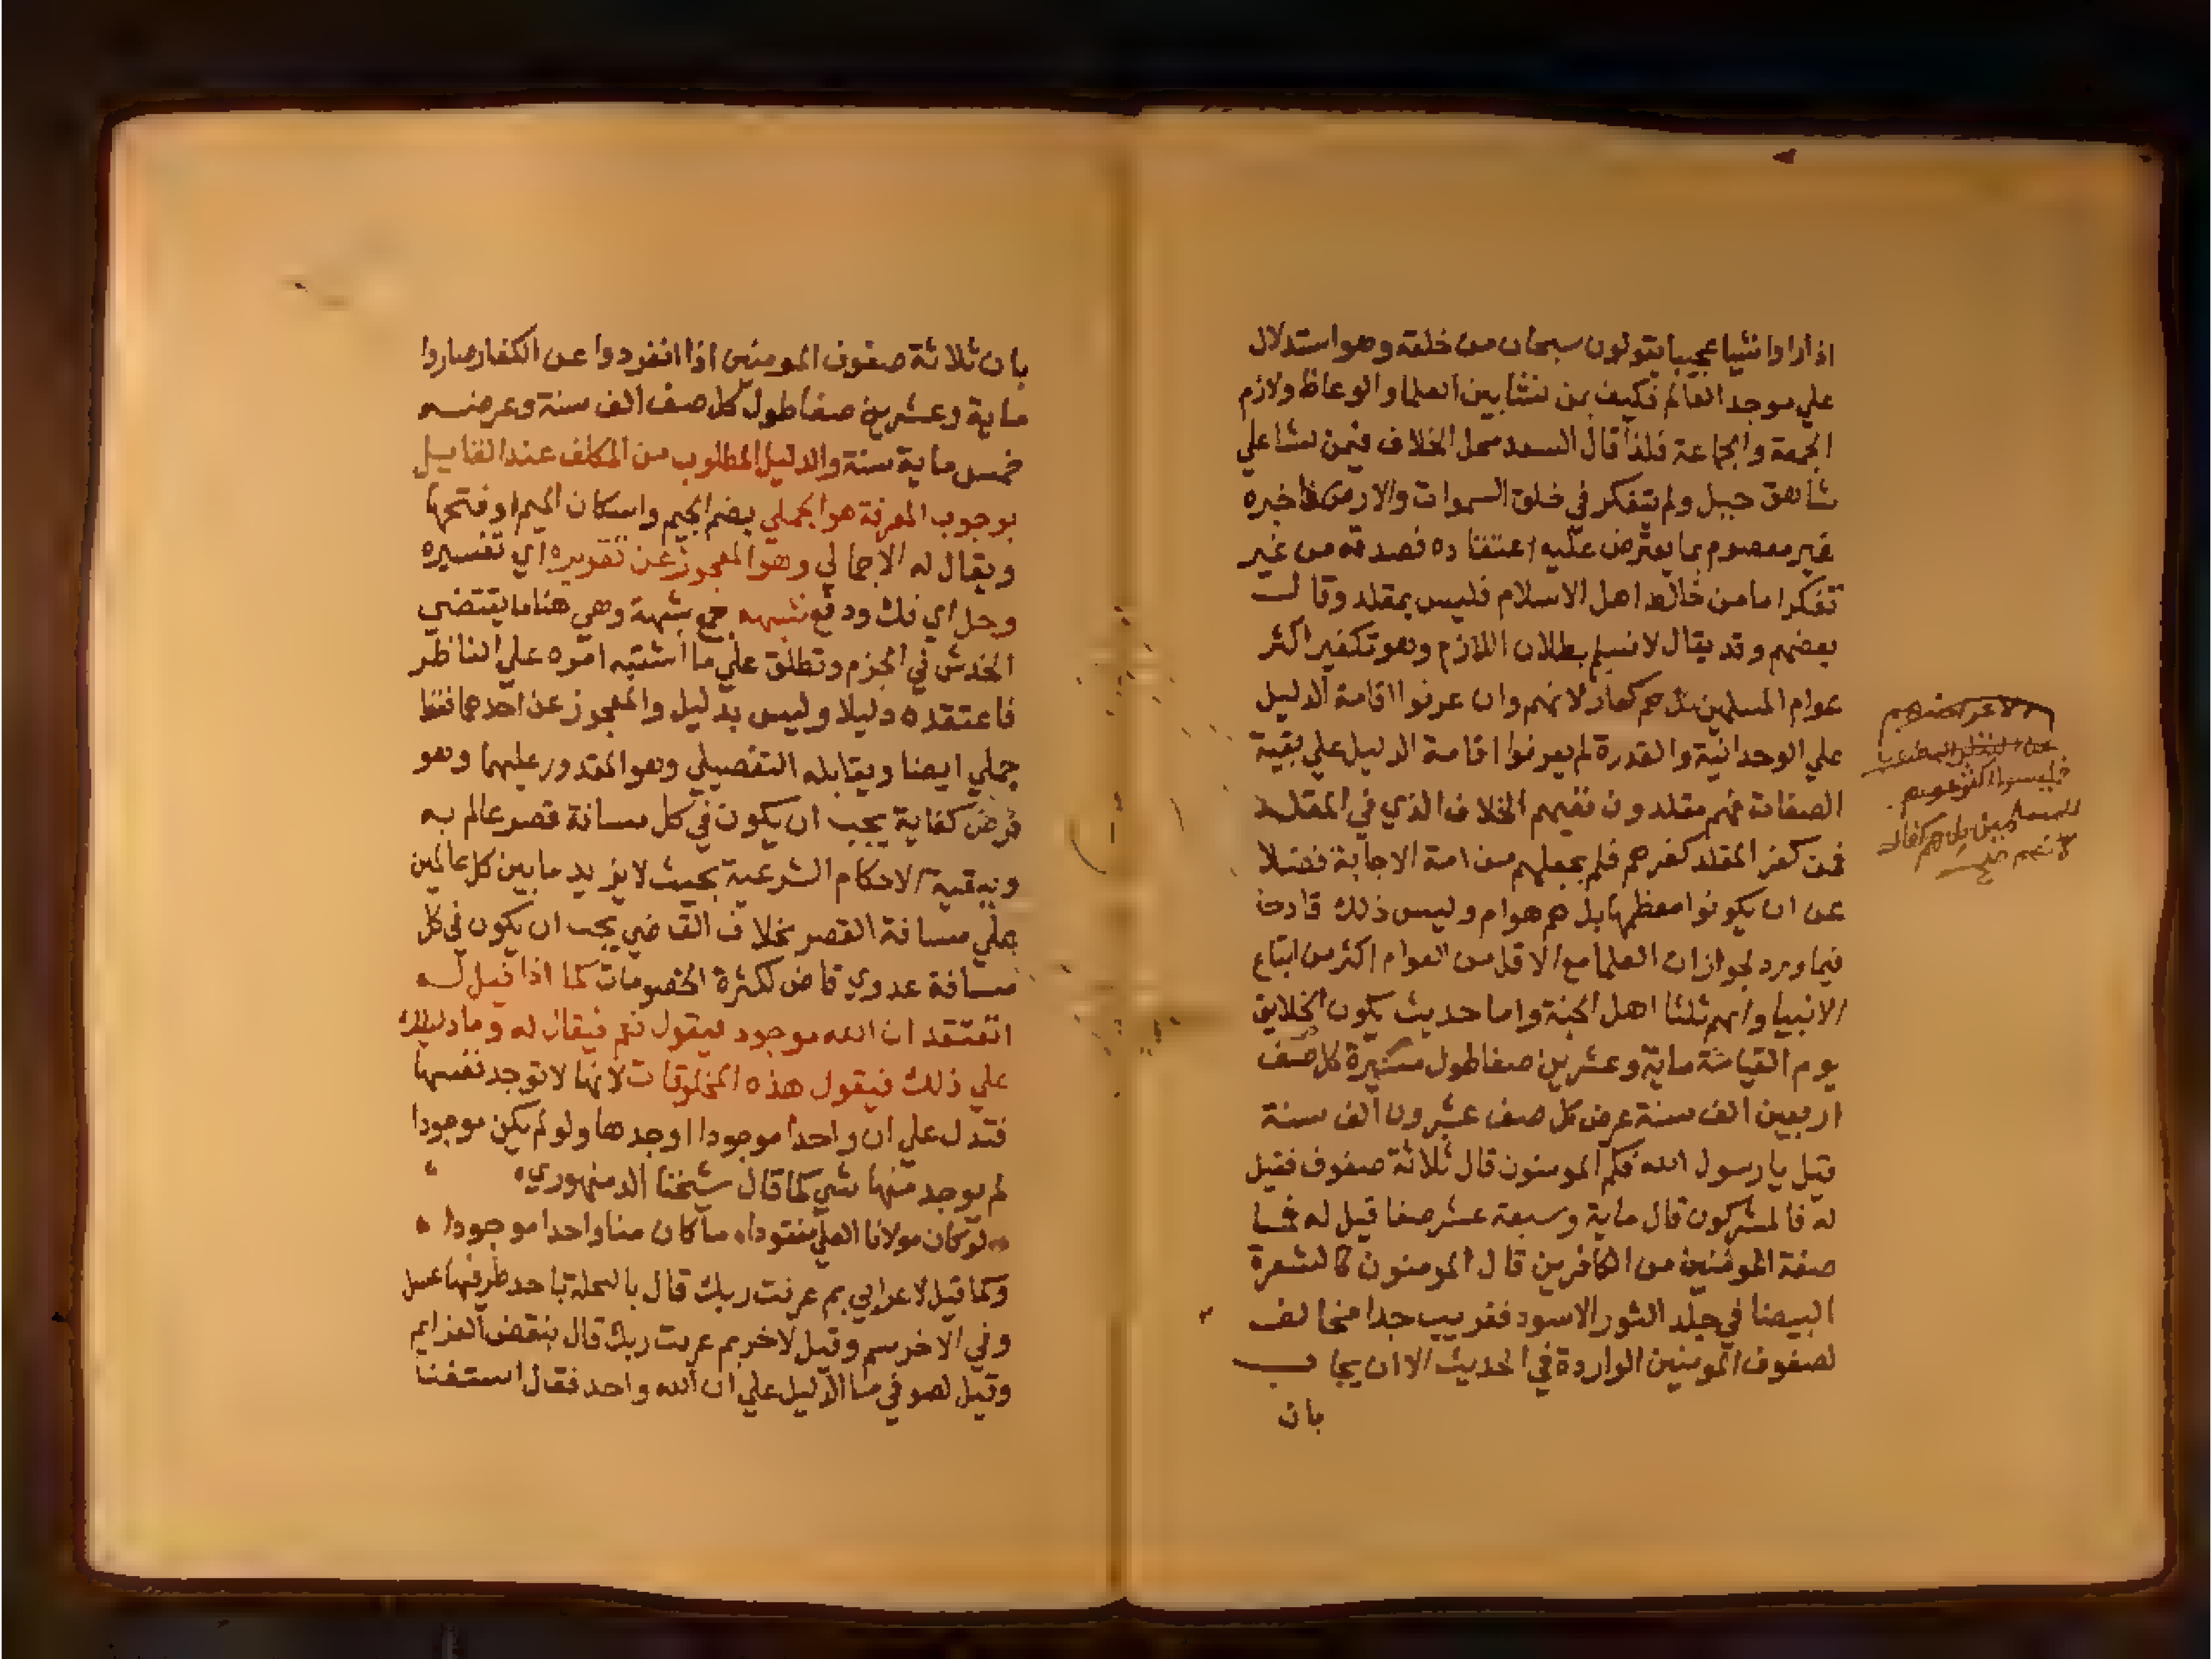 اذا راوا شيا عجيبا يقولون سبحان من خلقه وهو استدلال
علي موجد العالم فكيف بمن نشا بين العلما والوعاظ ولازم
الجمعة والجماعة فلذا قال السعد محل الخلاف فيمن نشا علي
شاهق جبل ولم يتفكر في خلق السموات والارض فاخبره
غير معصوم بما يعترض عليه اعتقاده فصدقه من غير
تفكر اما من خالط اهل الاسلام فليس بمقلد وقال
بعضهم وقد يقال لا نسلم بطلان اللازم وهو تكفير اكثر
عوام المسلمين بل هم كفار لانهم وان عرفوا اقامة الدليل
علي الوحدانية والقدرة لم يعرفوا اقامة الدليل علي بقية
الصفات فهم مقلدون ففيهم الخلاف الذي في المقلد
فمن كفر المقلد كفرهم فلم يجعلهم من امة الاجابة فضلا
عن ان يكونوا معظمها بل هم هوام وليس ذلك قادحا
فيما ورد لجواز ان العلما مع الاقل من العوام اكثر من اتباع
الانبيا وانهم ثلثا اهل الجنة واما حديث يكون الخلايق
يوم القيامة ماية وعشرين صفا طول مسيرة كل صف
اربعين الف سنة عرض كل صف عشرون الف سنة
قيل يا رسول الله فكم المومنون قال ثلاثة صفوف فقيل
له فالمشركون قال ماية وسبعة عشر صفا قيل له فما
صفة المومنين من الكافرين قال المومنون كالشعرة
البيضا في جلد الثور الاسود فقريب جدا مخالف
لصفوف المومنين الواردة في الحديث الا ان يجاب
بان
فليسوا
بل هم كفار
لانهم صح
بان ثلاثة صفوف المومنين اذا انفردوا عن الكفار صاروا
ماية وعشرين صفا طول كل صف الف سنة وعرضه
خمس ماية سنة والدليل المطلوب من المكلف عند القايل
بوجوب المعرفة هو الجملي بضم الجيم واسكان الميم او فتحها
ويقال له الاجمالي وهو المعجوز عن تقريره اي تفسيره
وحل اي فك ودفع شبهه جمع شبهة وهي هنا ما يقتضي
الخدش في الجزم وتطلق علي ما اشتبه امره علي الناظر
فاعتقده دليلا وليس بدليل والمعجوز عن احدهما فقط
جملي ايضا ويقابله التفصيلي وهو المقدور عليهما وهو
فرض كفاية يجب ان يكون في كل مسافة قصر عالم به
وببقية الاحكام الشرعية بحيث لا يزيد ما بين كل عالمين
علي مسافة القصر بخلاف القاضي يجب ان يكون في كل
مسافة عدوي قاض لكثرة الخصومات كما اذا قيل له
اتعتقد ان الله موجود فيقول نعم فيقال له وما دليلك
علي ذلك فيقول هذه المخلوقات لانها لا توجد نفسها
فتدل علي ان واحدا موجودا اوجدها ولو لم يكن موجودا
لم يوجد منها شي كما قال شيخنا الدمنهوري
لو كان مولانا العلي مفقودا ما كان منا واحدا موجودا
وكما قيل لاعرابي بم عرفت ربك قال بالنحلة باحد طرفيها عسل
وفي الاخر سم وقيل لاخر بم عرفت ربك قال بنقض العزايم
وقيل لصوفي ما الدليل علي ان الله واحد فقال استغنا